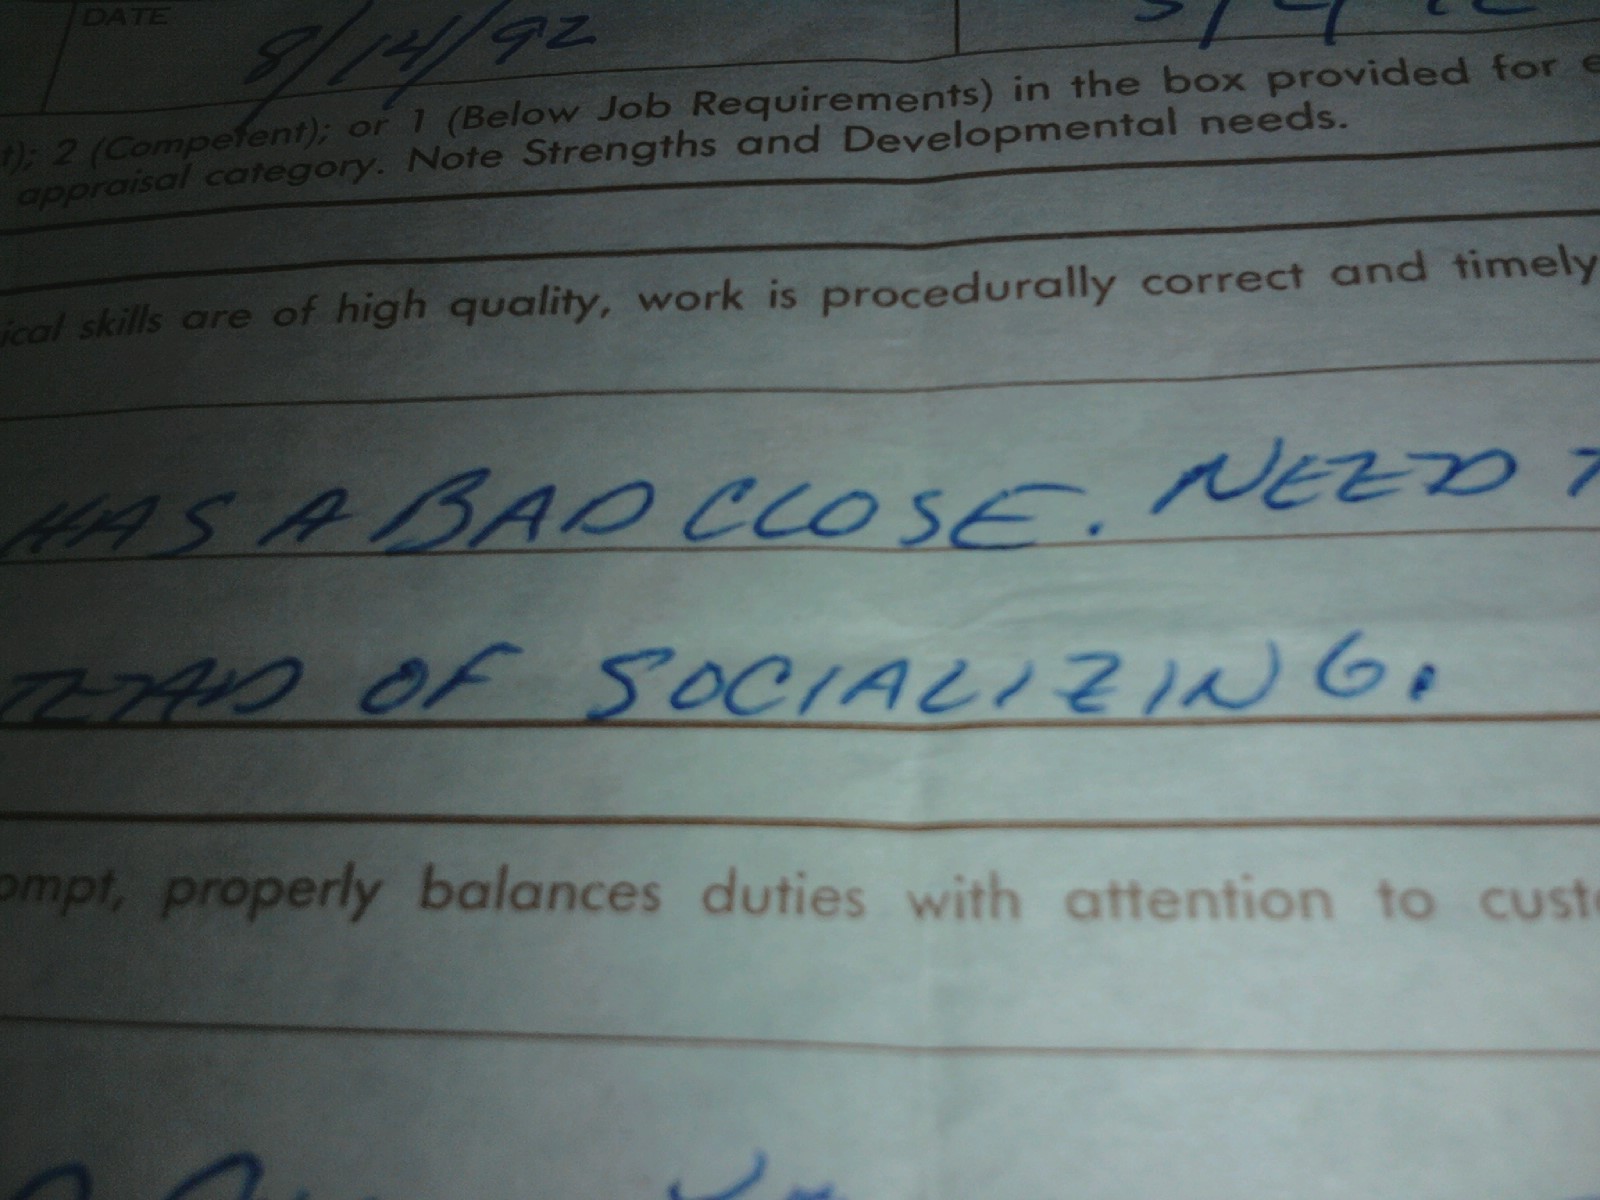 DATE
8/14/92
t); 2 (Competent); or 1 (Below Job Requirements) in the box provided for e
appraisal category. Note Strengths and Developmental needs.
ical skills are of high quality, work is procedurally correct and timely
HAS A BAD CLOSE. NEED T
TEAD OF SOCIALIZING.
ompt, properly balances duties with attention to custo